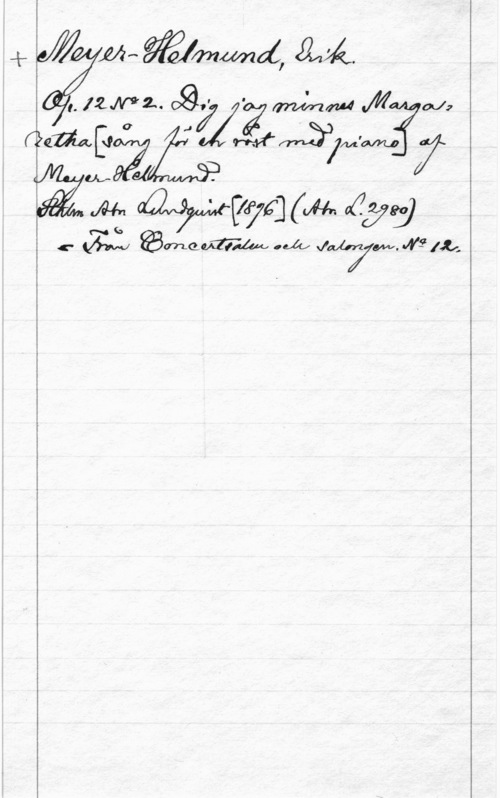 + Meyer-Helmund, Erik.
Op. 12 Nº 2. Dig jag minnes Marga=
retha [sång för en röst med piano] af
Meyer-Helmund.
Sthlm Abr Lundquist [1896] (Abr L. 2980)
= Från Concertsalen och salongen. Nº 12.